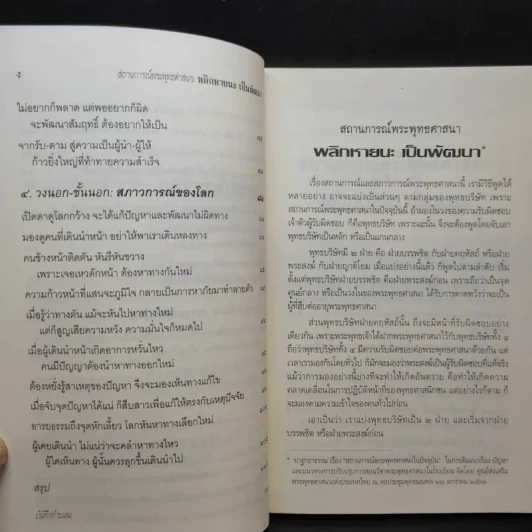 ง
สถานการณ์พระพุทธศาสนา พลิกหายนะ เป็นพัฒนา
ไม่อยากก็พลาด แต่พออยากก็ผิด
จะพัฒนาสัมฤทธิ์ ต้องอยากให้เป็น
จากรับ-ตาม สู่ความเป็นผู้นำ-ผู้ให้
ก้าวยิ่งใหญ่ที่ท้าทายความสำเร็จ
๔. วงนอก-ชั้นนอก: สภาวการณ์ของโลก
เปิดตาดูโลกกว้าง จะได้แก้ปัญหาและพัฒนาไม่ผิดทาง
มองดูคนที่เดินนำหน้า อย่าให้พาเราเดินหลงทาง
คนข้างหน้าติดตัน หันรีหันขวาง
เพราะเจอเหวดักหน้า ต้องหาทางกันใหม่
ความก้าวหน้าที่แสนจะภูมิใจ กลายเป็นการหาภัยมาทำลายตัว
เมื่อรู้ว่าทางตัน แม้จะหันไปหาทางใหม่
แต่ก็สูญเสียความหวัง ความมั่นใจก็หมดไป
เมื่อผู้เดินนำหน้าเกิดอาการหวั่นไหว
คนมีปัญญาต้องนำหาทางออกใหม่
ต้องหยั่งรู้สาเหตุของปัญหา จึงจะมองเห็นทางแก้ไข
เมื่อจับจุดปัญหาได้แน่ ก็สืบสาวเพื่อแก้ให้ตรงกับเหตุปัจจัย
อารยธรรมถึงจุดหักเลี้ยว โลกหันหาทางเลือกใหม่
ผู้เคยเดินนำ ไม่แน่ว่าจะคลำหาทางไหว
ผู้ใดเห็นทาง ผู้นั้นควรลุกขึ้นเดินนำไป
สรุป
บันทึกท้ายเล่ม
สถานการณ์พระพุทธศาสนา
พลิกหายนะ เป็นพัฒนา*
เรื่องสถานการณ์และสภาวการณ์พระพุทธศาสนานี้ เรามีวิธีพูดได้
หลายอย่าง อาจจะแบ่งเป็นส่วนๆ ตามกลุ่มของพุทธบริษัท เพราะ
สถานการณ์พระพุทธศาสนาในปัจจุบันนี้ ถ้ามองในวงของความรับผิดชอบ
เจ้าตัวผู้รับผิดชอบ ก็คือพุทธบริษัท เพราะฉะนั้น จึงจะต้องพูดโดยจับเอา
พุทธบริษัทเป็นหลัก หรือเป็นแกนกลาง
พุทธบริษัทมี ๒ ฝ่าย คือ ฝ่ายบรรพชิต กับฝ่ายคฤหัสถ์ หรือฝ่าย
พระสงฆ์ กับฝ่ายญาติโยม เมื่อแบ่งอย่างนี้แล้ว ก็พูดไปตามลำดับ เริ่ม
ตั้งแต่พุทธบริษัทฝ่ายบรรพชิต คือฝ่ายพระสงฆ์ก่อน เพราะถือว่าเป็นจุด
ศูนย์กลาง หรือเป็นวงในของพระพุทธศาสนา ได้รับการคาดหวังว่าจะเป็น
ผู้ที่สืบต่ออายุพระพุทธศาสนา
ส่วนพุทธบริษัทฝ่ายคฤหัสถ์นั้น ถึงจะมีหน้าที่รับผิดชอบอย่าง
เดียวกัน เพราะพระพุทธเจ้าได้ฝากพระพุทธศาสนาไว้กับพุทธบริษัททั้ง ๔
ถือว่าพุทธบริษัททั้ง ๔ มีความรับผิดชอบต่อพระพุทธศาสนาด้วยกัน แต่
เวลาเรามองกันโดยทั่วไป ก็มักจะมองว่าพระสงฆ์เป็นผู้รับผิดชอบที่แท้จริง
แม้ว่าการมองอย่างนี้บางทีจะทำให้เกิดอันตราย คือทำให้เกิดความ
คลาดเคลื่อนในการปฏิบัติหน้าที่ของพุทธศาสนิกชน แต่อย่างไรก็ตาม ก็
จะมองตามความเข้าใจของคนทั่วไปก่อน
เอาเป็นว่า เราแบ่งพุทธบริษัทเป็น ๒ ฝ่าย และเริ่มจากฝ่าย
บรรพชิต หรือฝ่ายพระสงฆ์ก่อน
* ปาฐกถาธรรม เรื่อง "สถานการณ์พระพุทธศาสนาในปัจจุบัน" ในการสัมมนาเรื่อง ปัญหา
และแนวทางการปรับปรุงการสอนวิชาพระพุทธศาสนาในโรงเรียน จัดโดย ศูนย์ส่งเสริม
พระพุทธศาสนาแห่งประเทศไทย ณ หอประชุมพุทธมณฑล